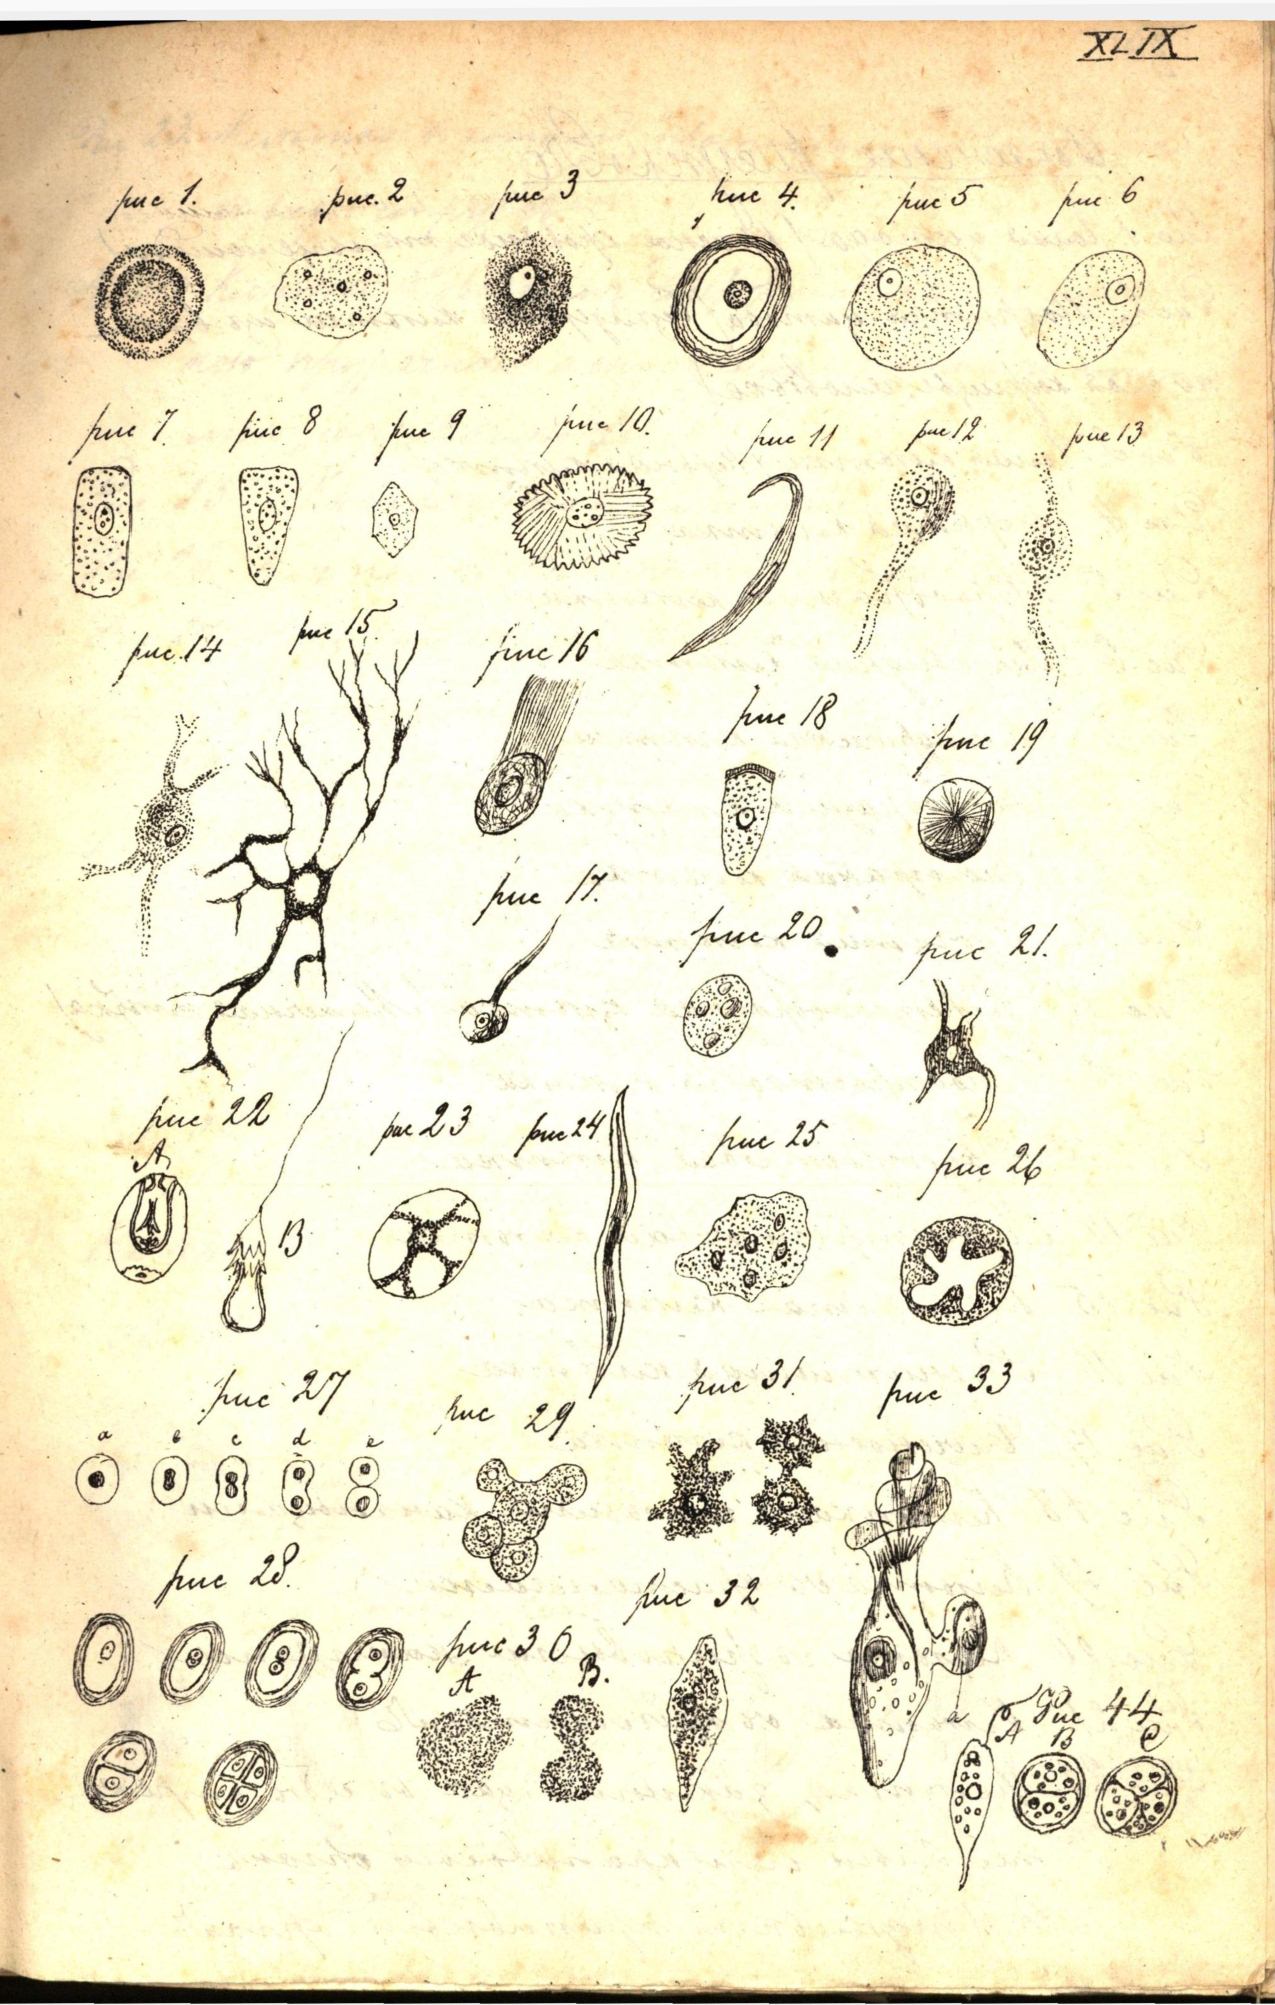 XLIX
рис 1. рис. 2 рис 3 рис 4. рис 5 рис 6
рис 7. рис 8 рис 9 рис 10. рис 11 рис 12 рис 13
рис. 14 рис 15. рис 16
рис 18 рис 19
рис 17.
рис 20. рис 21.
рис 22 рис 23 рис 24 рис 25
A
рис 26
B
рис 27 рис 29. рис 31. рис 33
a b c d e
рис 28. рис 32
рис 30
A B.
a
Рис 44
A B C